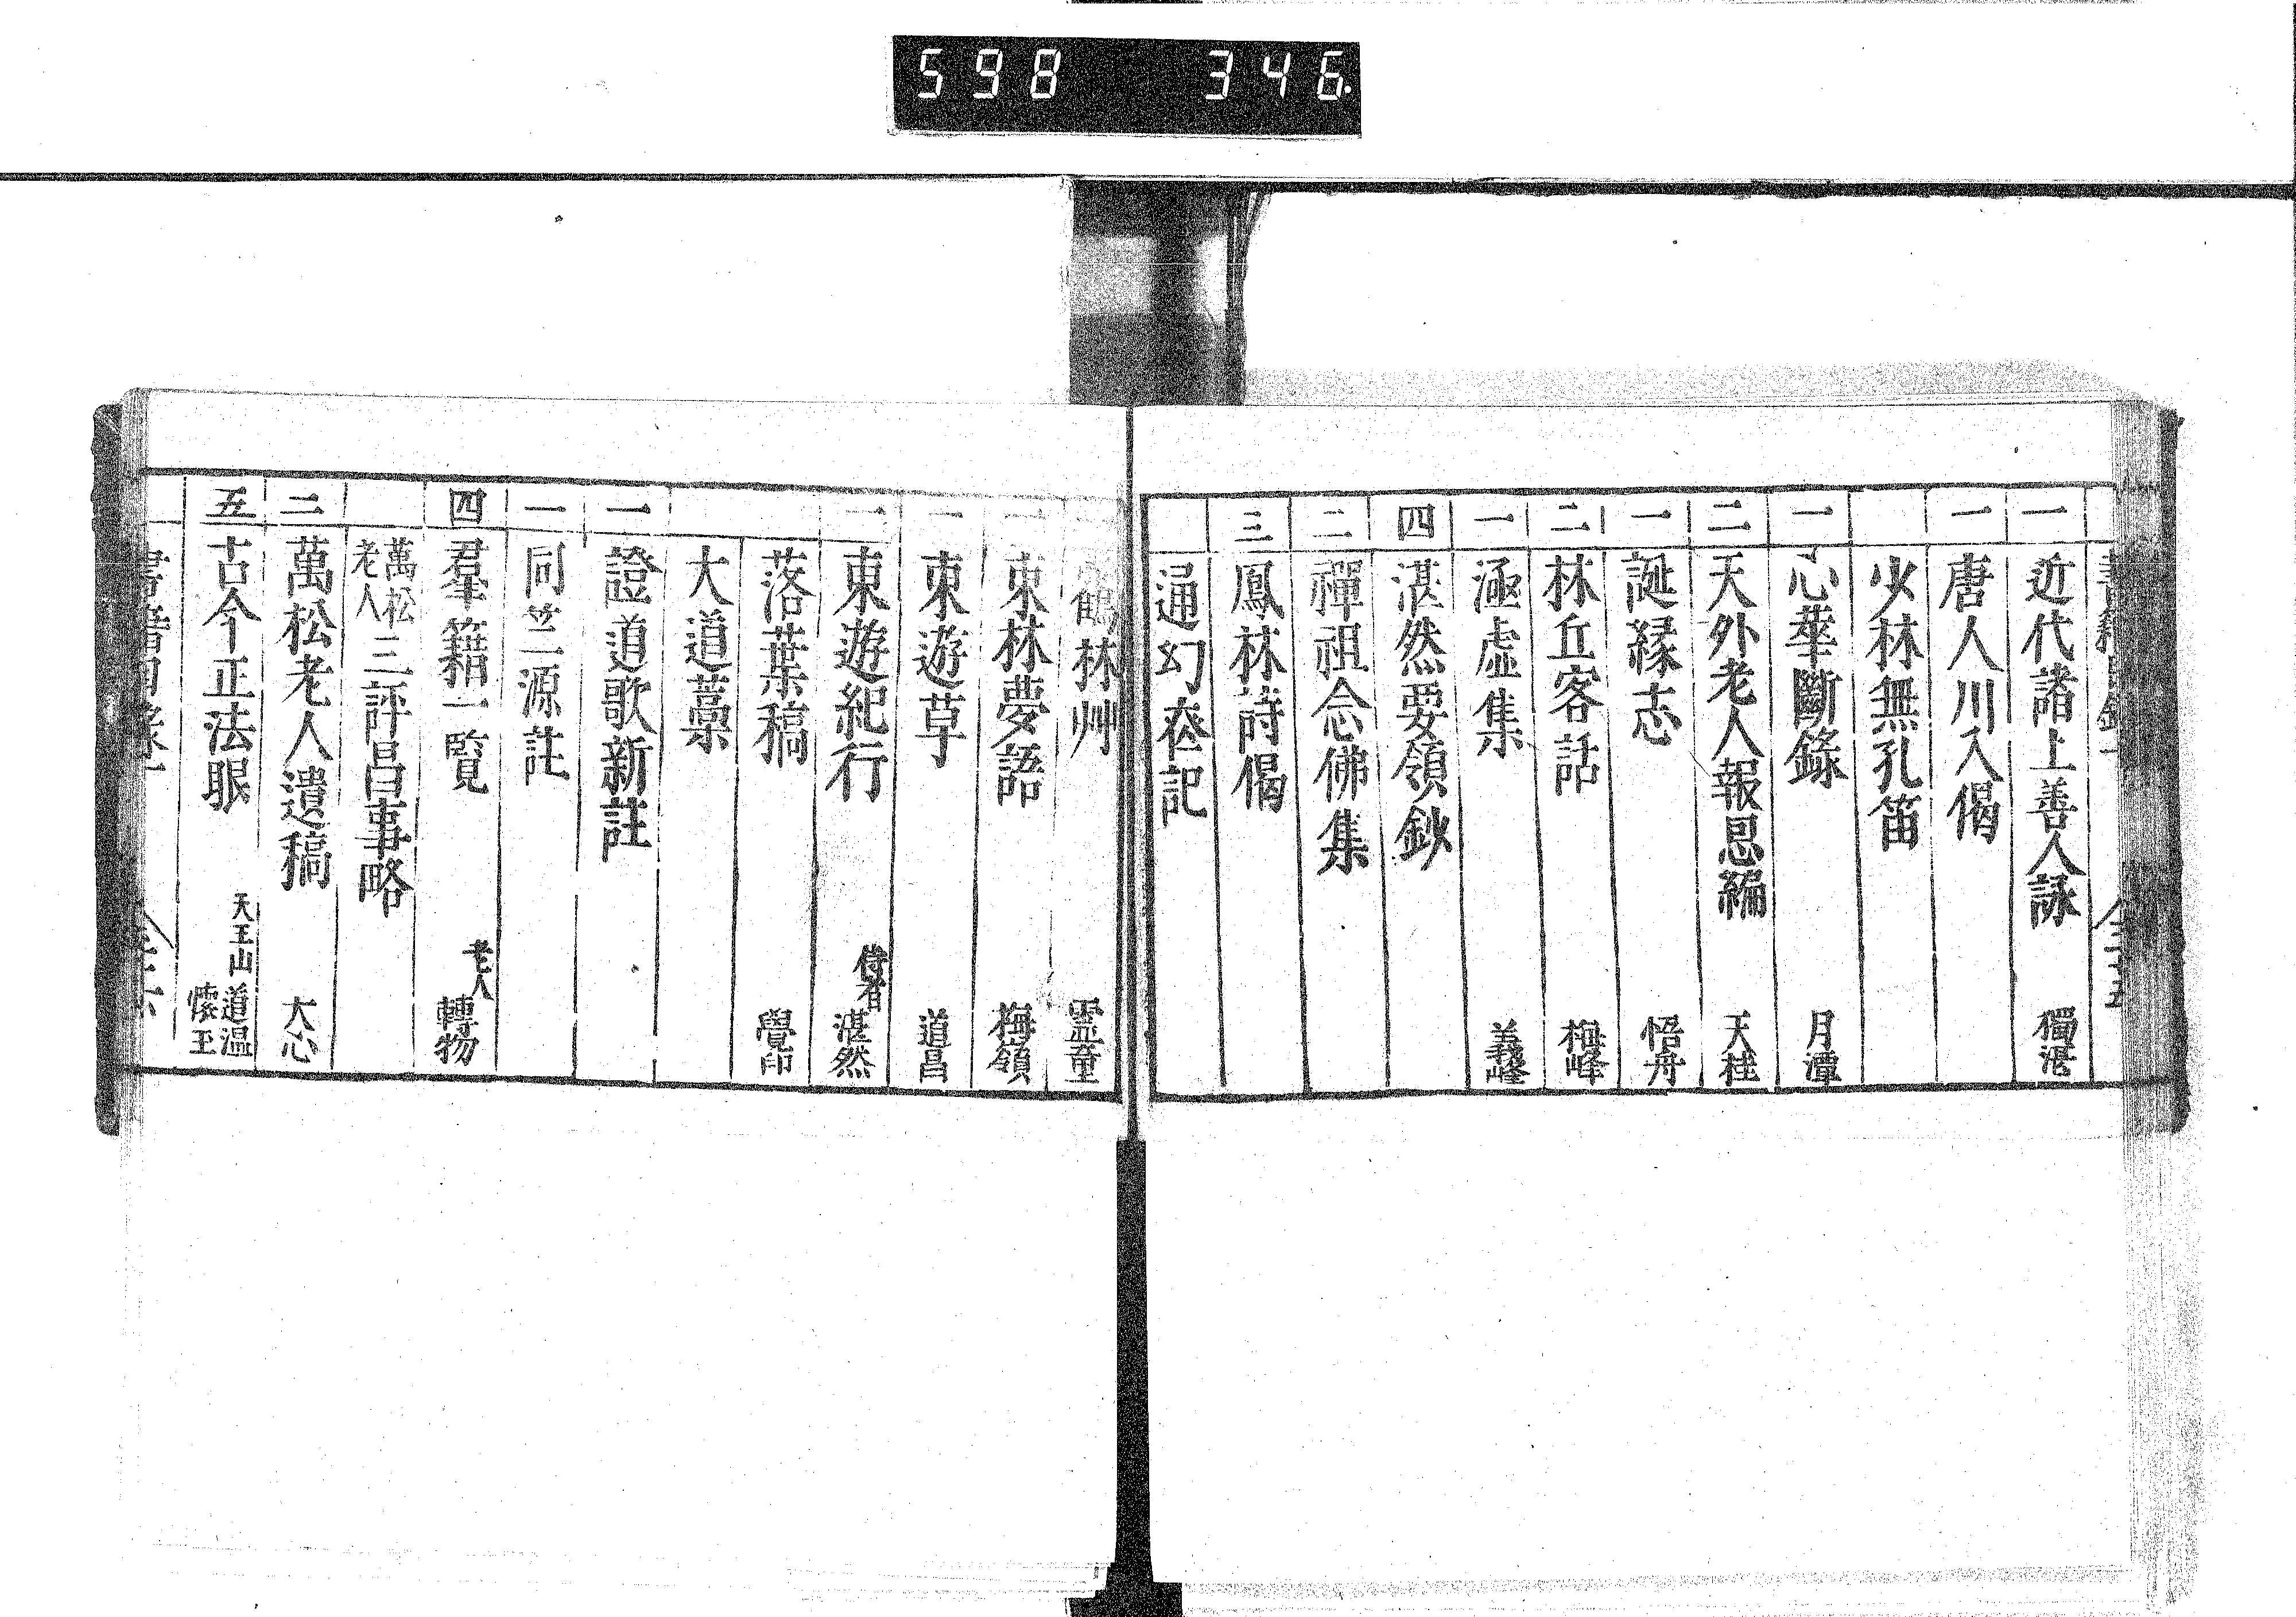 598 346
一 近代諸上善人詠 獨湛
一 唐人川入偈
少林無孔笛
一 心華斷錄 月潭
二 天外老人報恩編 天桂
一 誕縁志 悟舟
二 林丘客話 梅峰
一 涵虛集 義峰
四 湛然要領鈔
二 禪祖念佛集
三 鳳林詩偈
通幻㚑記
鶴林艸 霊童
一 東林夢語 梅嶺
一 東遊草 道昌
一 東遊紀行 侍者 湛然
落葉稿 覺印
大道藁
一 證道歌新註
一 同竺源註
四 羣籍一覽 老人 轉物
萬松老人 三評唱事略
二 萬松老人遺稿 大心
五 古今正法眼 天王山 道温 懐玉